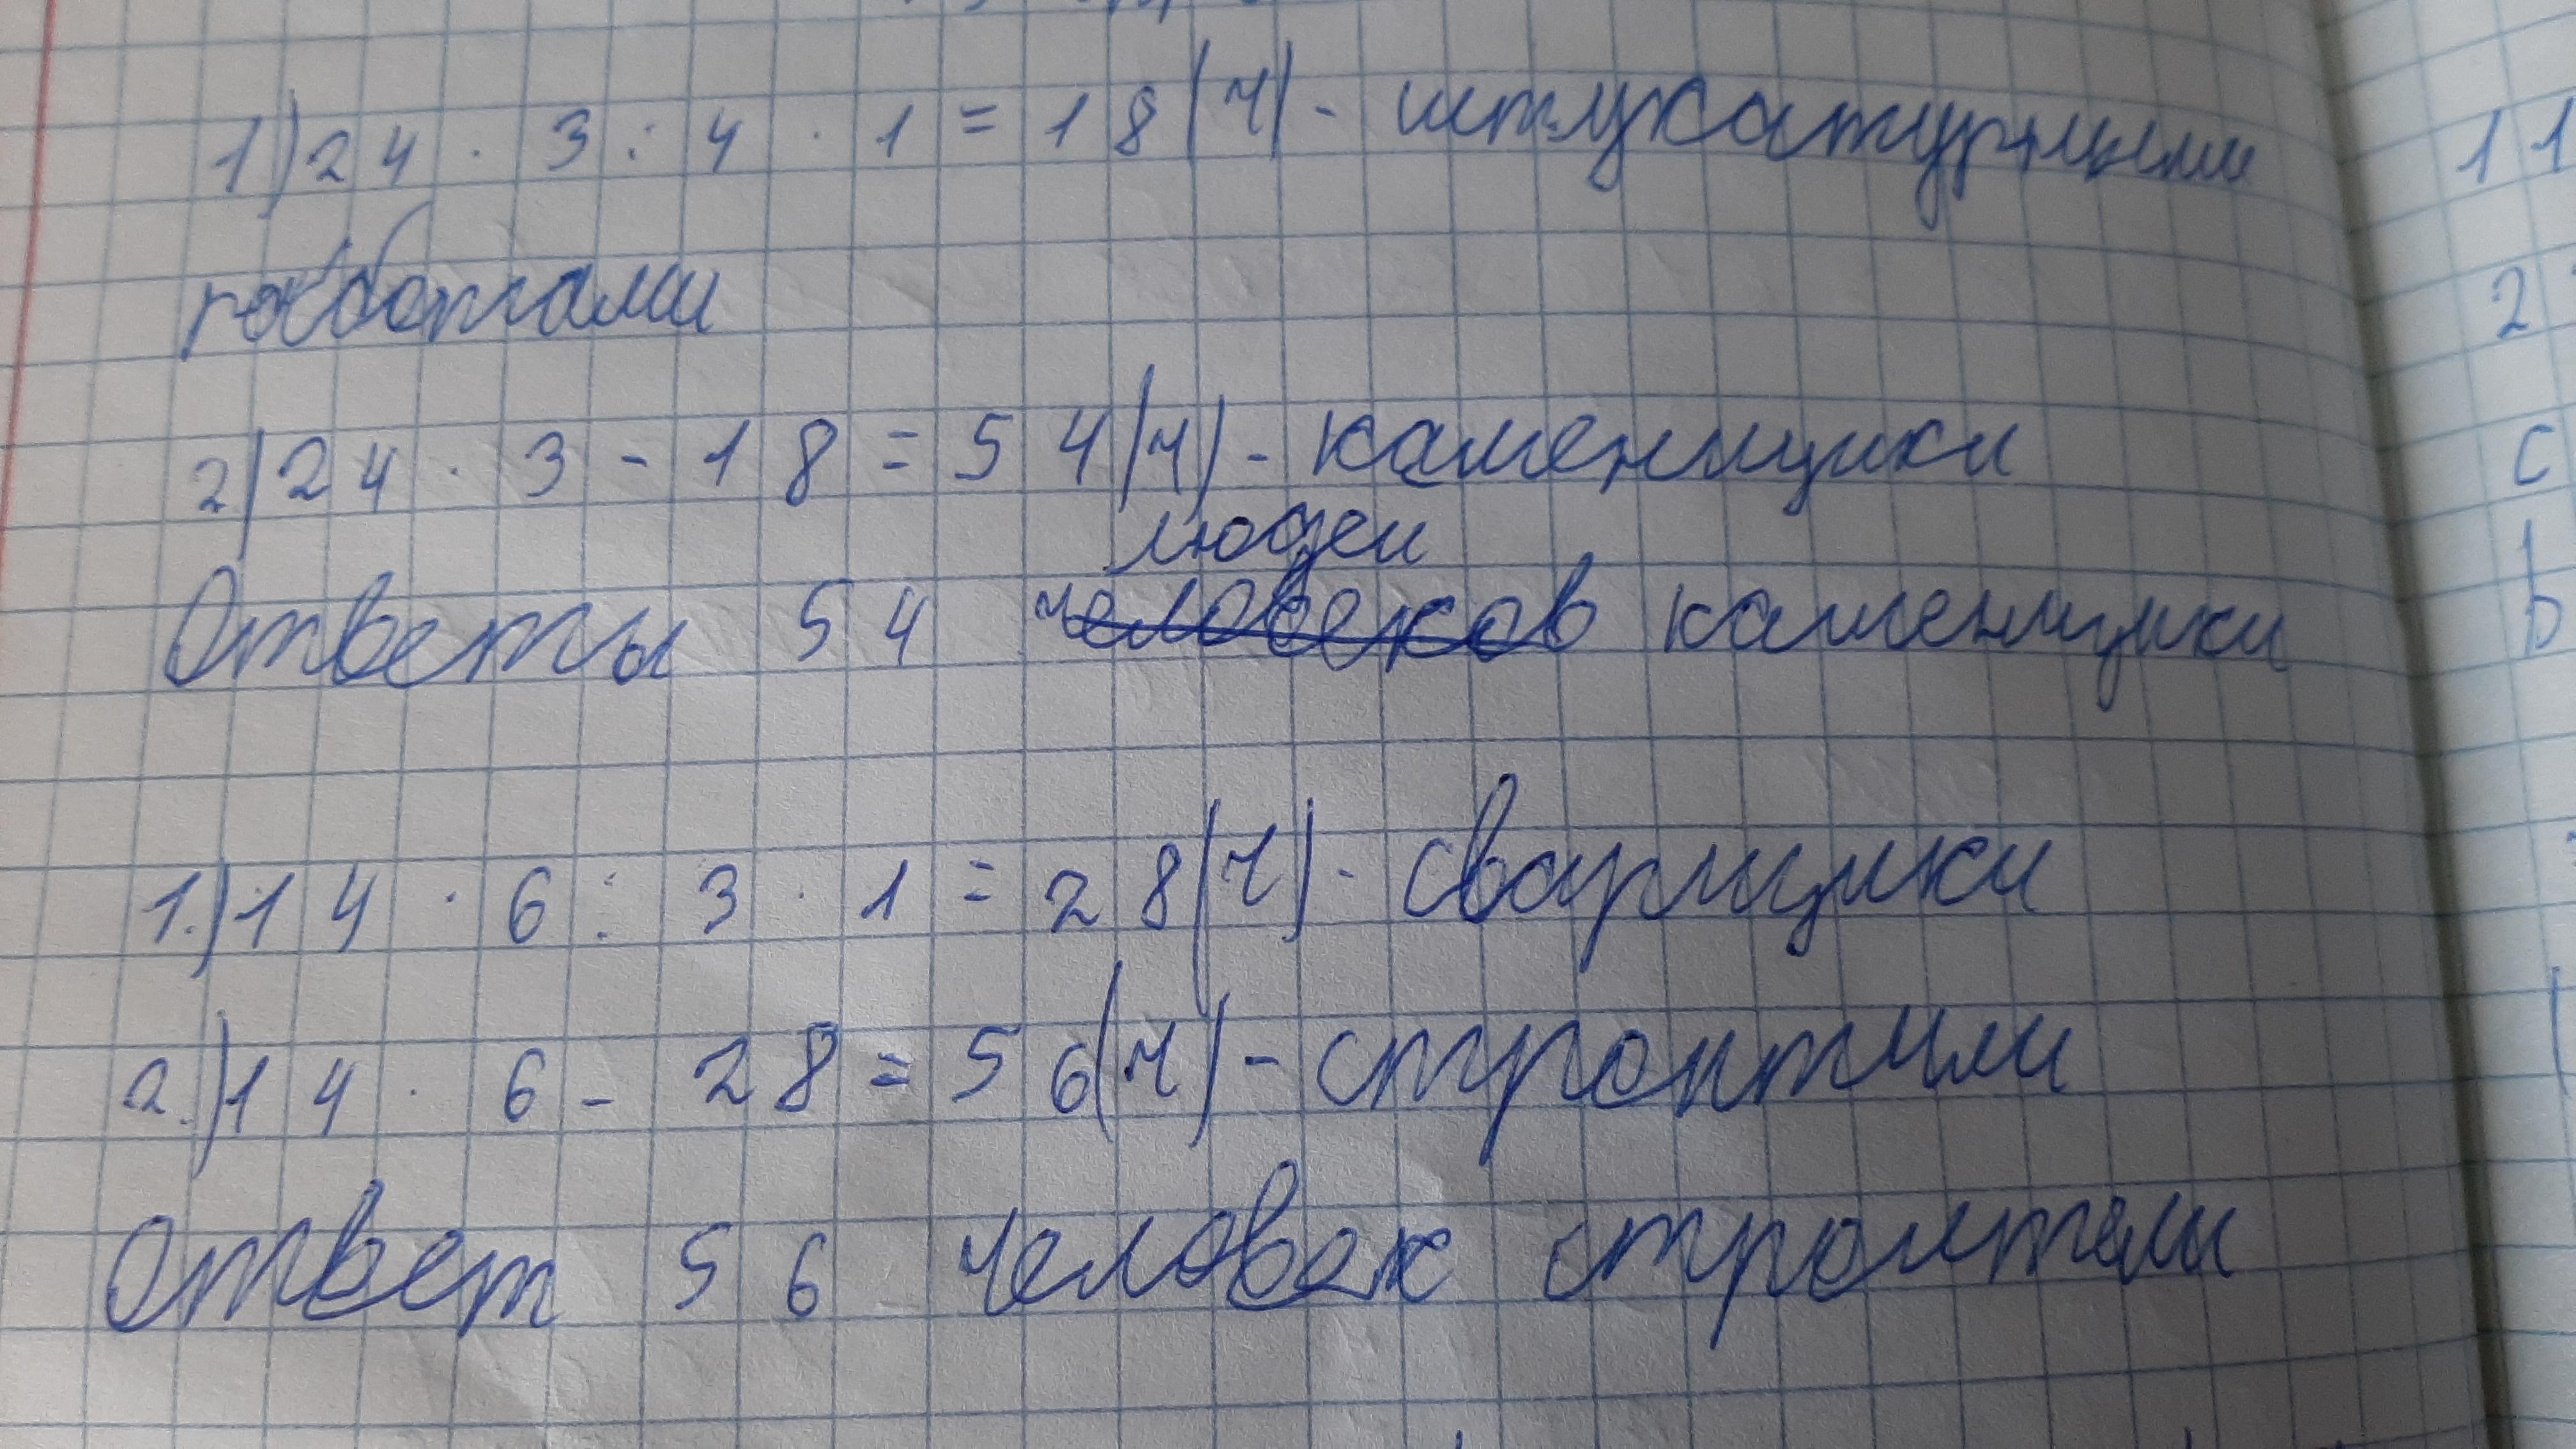 1) 24 · 3 : 4 · 1 = 18 (ч) - штукатурными
работами
2) 24 · 3 - 18 = 54 (ч) - каменщики
людей
Ответы 54 человеков каменщики
1.) 14 · 6 : 3 · 1 = 28 (ч) - сварщики
2.) 14 · 6 - 28 = 56 (ч) - строители
Ответ 56 человек строители
11
2
с
1
b